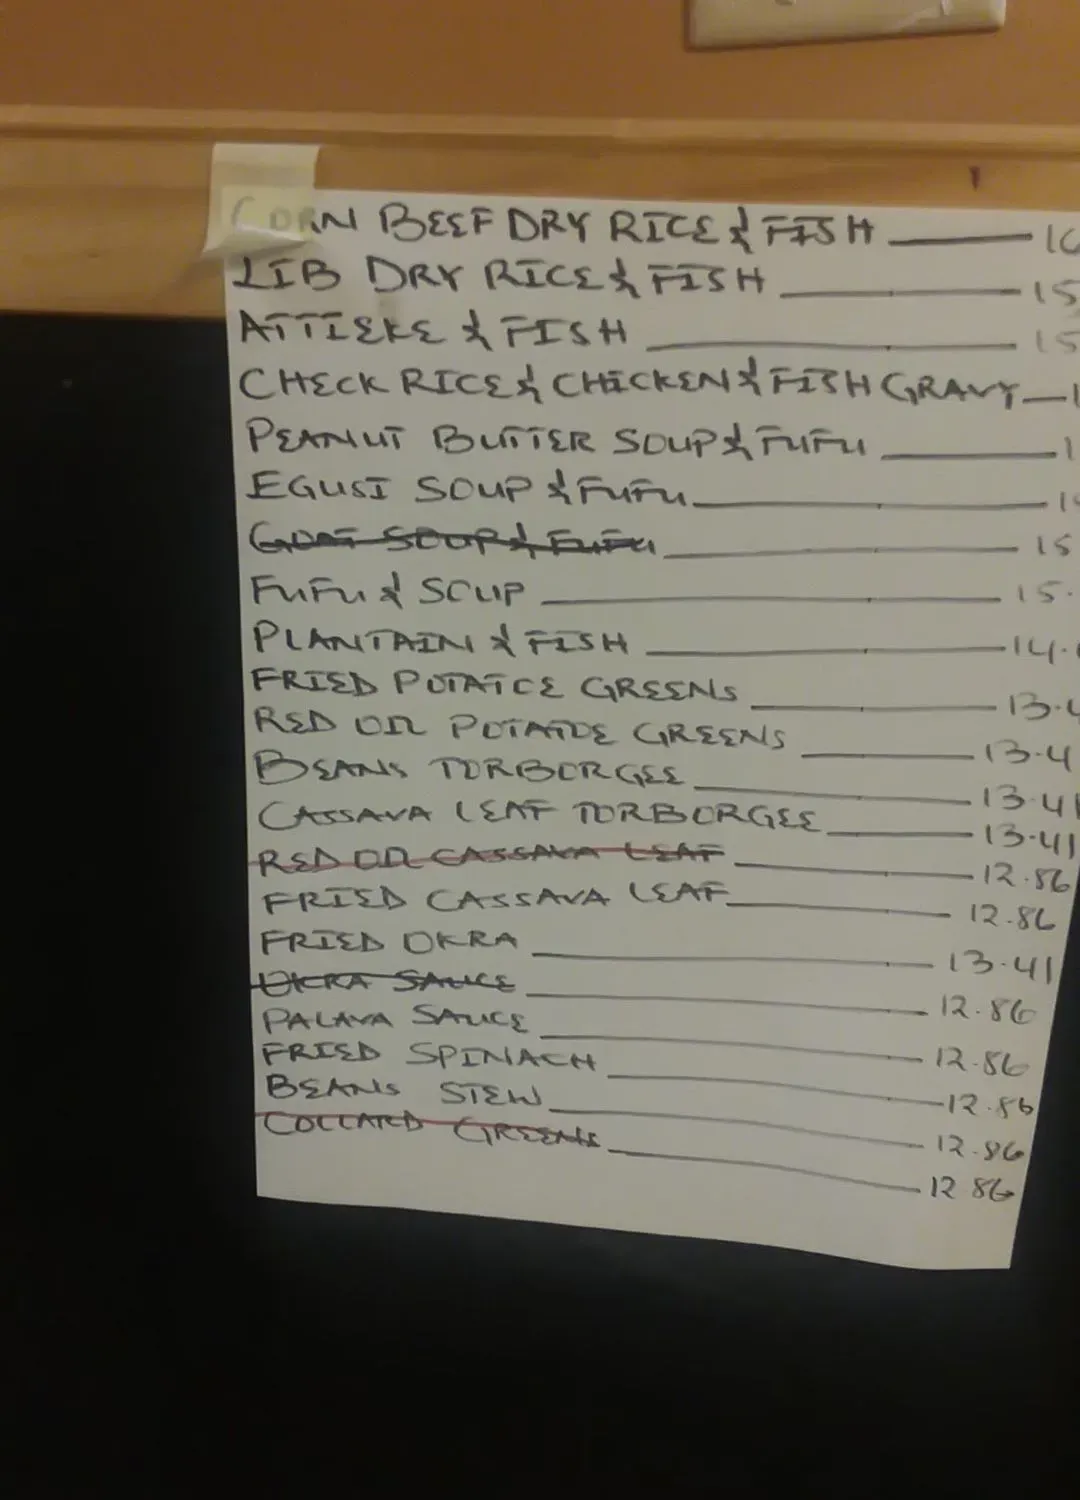 CORN BEEF DRY RICE & FISH 16
LIB DRY RICE & FISH 15
ATTIEKE & FISH 15
CHECK RICE & CHICKEN & FISH GRAVY 1
PEANUT BUTTER SOUP & FUFU 1
EGUSI SOUP & FUFU 1
GOAT SOUP & FUFU 15
FUFU & SOUP 15.
PLANTAIN & FISH 14.
FRIED POTATOE GREENS 13.4
RED OIL POTATOE GREENS 13.4
BEANS TORBORGEE 13.41
CASSAVA LEAF TORBORGEE 13.41
RED OIL CASSAVA LEAF 12.86
FRIED CASSAVA LEAF 12.86
FRIED OKRA 13.41
OKRA SAUCE 12.86
PALAVA SAUCE 12.86
FRIED SPINACH 12.86
BEANS STEW 12.86
COLLARD GREENS 12.86